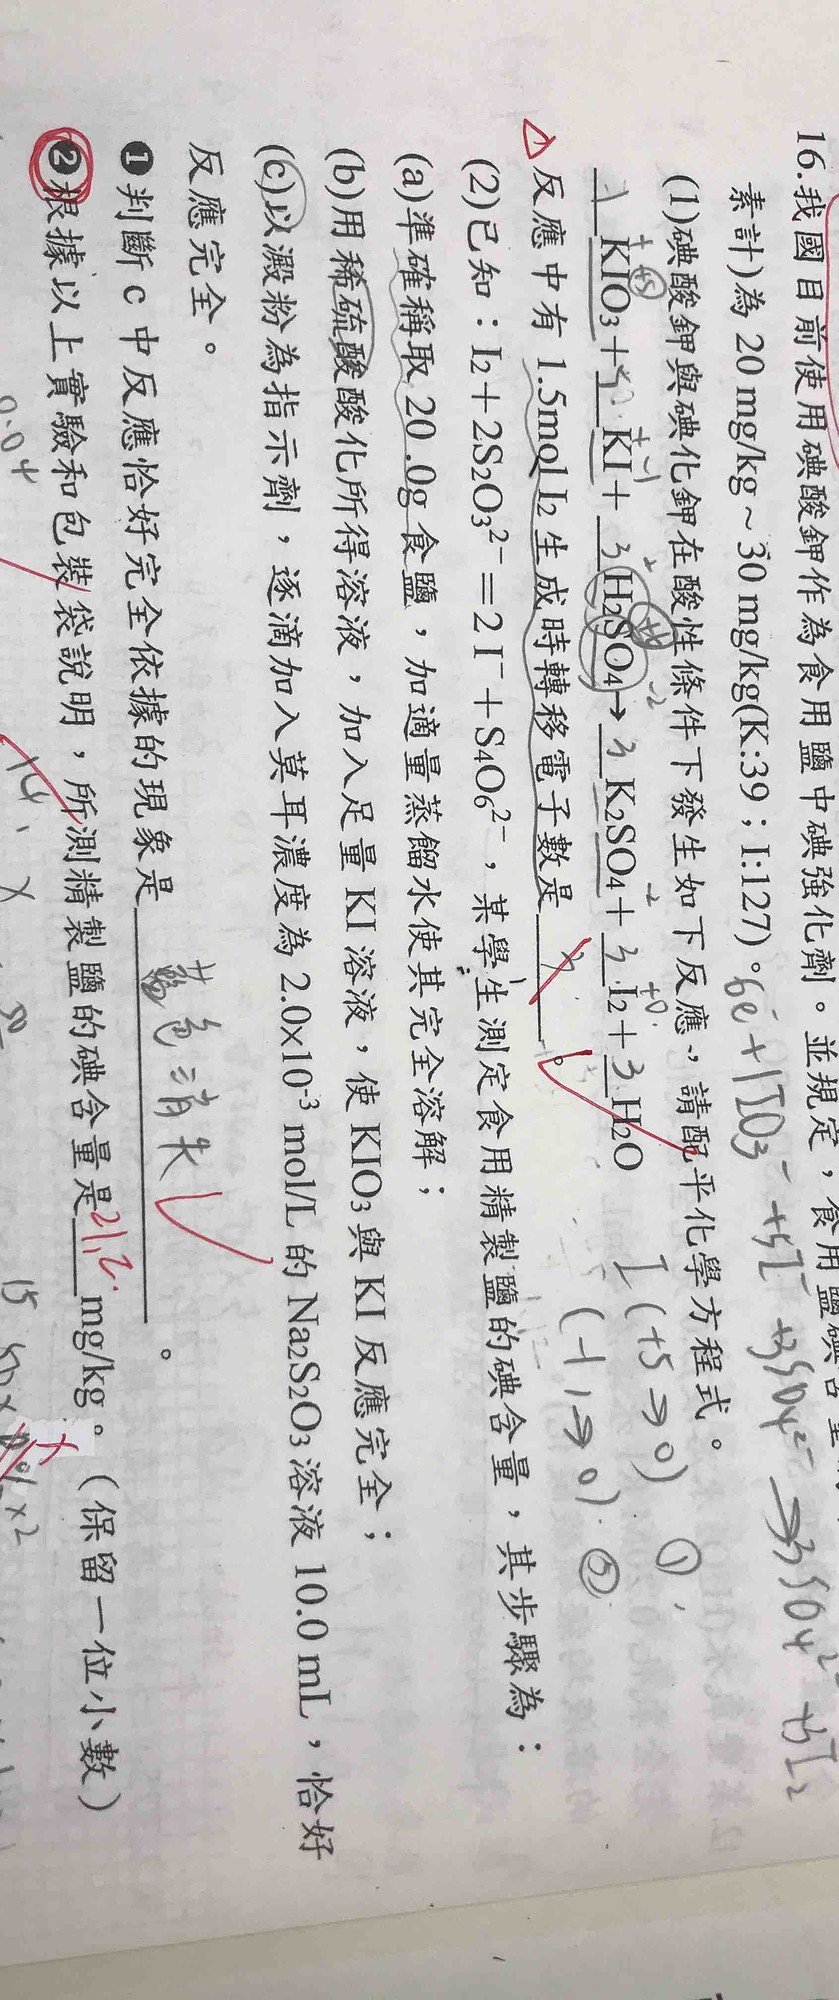 16.我國目前使用碘酸鉀作為食用鹽中碘強化劑。並規定,食用鹽碘含
素計)為 20 mg/kg～30 mg/kg(K:39；I:127)。
6e⁻+1IO3⁻+5I⁻+3SO4²⁻→3SO4²⁻+3I2
(1)碘酸鉀與碘化鉀在酸性條件下發生如下反應,請配平化學方程式。
1 KIO3+5 KI+3 H2SO4→3 K2SO4+3 I2+3 H2O
+ +5 + -1 +6 -2 -2 +0
I(+5→0) ①
(-1→0) ⑤
反應中有 1.5mol I2 生成時轉移電子數是
(2)已知：I2＋2S2O3²⁻＝2 I⁻＋S4O6²⁻,某學生測定食用精製鹽的碘含量,其步驟為：
(a)準確稱取 20.0g 食鹽,加適量蒸餾水使其完全溶解；
(b)用稀硫酸酸化所得溶液,加入足量 KI 溶液,使 KIO3 與 KI 反應完全；
(c)以澱粉為指示劑,逐滴加入莫耳濃度為 2.0x10⁻³ mol/L 的 Na2S2O3 溶液 10.0 mL,恰好
反應完全。
❶判斷 c 中反應恰好完全依據的現象是 藍色消失 。
❷根據以上實驗和包裝袋說明,所測精製鹽的碘含量是 21.2 mg/kg。(保留一位小數)
0.04
14. x
15